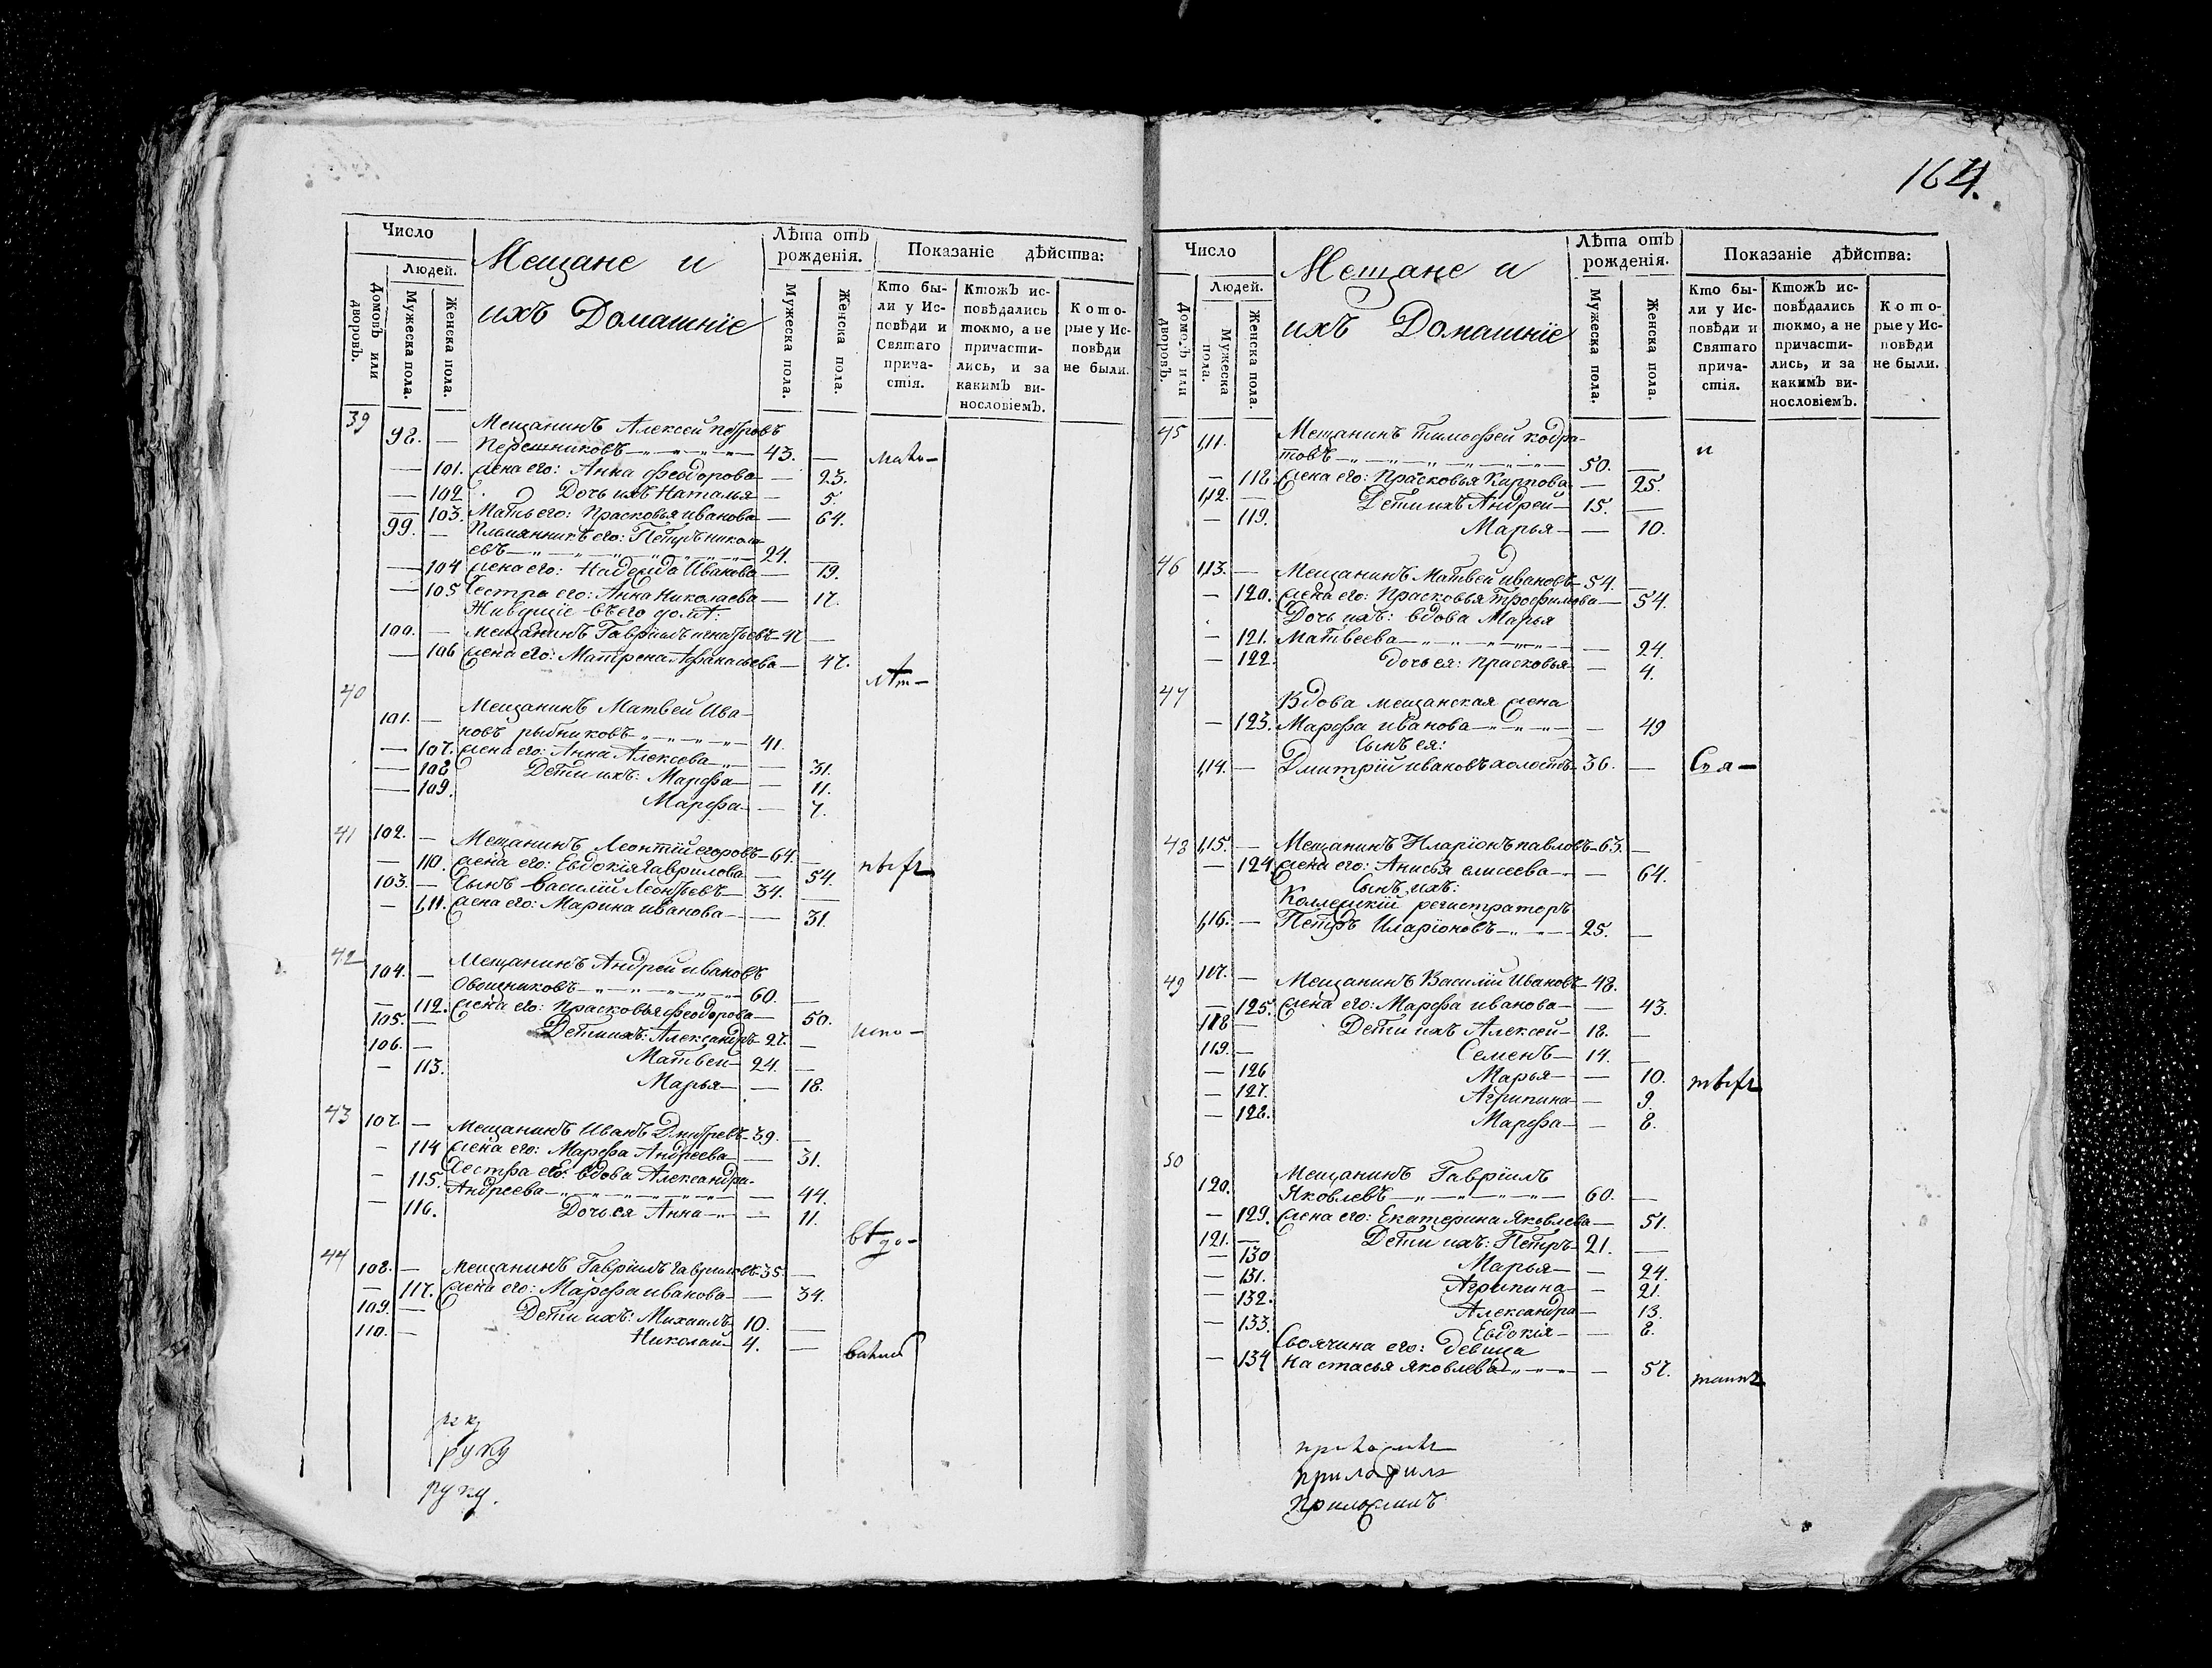 164.
Число
Людей.
Домовъ или дворовъ.
Мужеска пола.
Женска пола.
Мещане и
ихъ Домашніе
Лѣта отъ рожденія.
Мужеска пола.
Женска пола.
Показаніе дѣйства:
Кто бы-
ли у Ис-
повѣди и
Святаго
прича-
стія.
Ктожъ ис-
повѣдались
токмо, а не
причасти-
лись, и за
какимъ ви-
нословіемъ.
Кото-
рые у Ис-
повѣди
не были.
39 98. — Мещанинъ Алексей Петровъ
Перешниковъ 43. —
— 101. жена его: Анна Феодорова — 23.
— 102 Дочь ихъ Наталья — 5.
— 103. Мать его: Прасковья иванова — 64.
99. — Племянникъ его: Петръ никола
евъ 24.
— 104 жена его: Надежда Иванова — 19.
— 105 Сестра его: Анна Николаева — 17.
Живущіе въ его домѣ:
100. — Мещанинъ Гавріилъ игнатьевъ 47 —
— 106 жена его: Матрена Афанасьева — 47.
40
101. — Мещанинъ Матвей Ива-
новъ рыбниковъ 41.
— 107. жена его: Анна Алексева — 31.
— 108 Дети ихъ: Марфа — 11.
— 109. Марфа — 7.
41 102. — Мещанинъ Леонтій егоровъ 64. —
— 110. жена его: Евдокія Гаврилова — 54.
103. — Сынъ Василій Леонтьевъ 34. —
— 111. жена его: Марина иванова — 31.
42 104. — Мещанинъ Андрей ивановъ
Овощниковъ 60. —
— 112. жена его: Прасковья Феодорова — 50.
105. — Дети ихъ: Александръ 27. —
106. — Матвей 24. —
— 113. Марья — 18.
43 107. — Мещанинъ Иванъ Дмитревъ 39. —
— 114 жена его: Марфа Андреева — 31.
Сестра его: вдова Александра
— 115. Андреева — 44.
— 116. Дочь ея Анна — 11.
44 108. — Мещанинъ Гавріилъ гавриловъ 35. —
— 117. жена его: Марфа иванова — 34.
109. — Дети ихъ: Михаилъ 10. —
110. — Николай 4. —
руку
руку.
Число
Людей.
Домовъ или дворовъ.
Мужеска пола.
Женска пола.
Мещане и
ихъ Домашніе
Лѣта отъ рожденія.
Мужеска пола.
Женска пола.
Показаніе дѣйства:
Кто бы-
ли у Ис-
повѣди и
Святаго
прича-
стія.
Ктожъ ис-
повѣдались
токмо, а не
причасти-
лись, и за
какимъ ви-
нословіемъ.
Кото-
рые у Ис-
повѣди
не были.
45 111. Мещанинъ Тимофей кодра-
товъ 50. — и
— 118 жена его: Прасковья Карпова — 25.
112. — Дети ихъ Андрей 15. —
— 119. Марья — 10.
46 113. — Мещанинъ Матвей ивановъ 54. —
— 120. жена его: Прасковья Трофимова — 54.
Дочь ихъ: вдова Марья
— 121. Матвеева — 24.
— 122. дочь ея: Прасковья — 4.
47 Вдова мещанская жена
— 123. Марфа иванова — 49
Сынъ ея:
114. — Дмитрій ивановъ холостъ 36. —
48 115. — Мещанинъ Иларіонъ павловъ 63. —
— 124 жена его: Анисья елисеева — 64.
Сынъ ихъ:
Коллежскій регистраторъ
116. — Петръ Иларіоновъ 25. —
49 117. — Мещанинъ Василій Ивановъ 48.
— 125. жена его: Марфа иванова — 43.
118 — Дети ихъ Алексей 18. —
119. — Семенъ 14. —
— 126 Марья — 10.
— 127. Агрипина — 9.
— 128. Марфа — 8.
50 Мещанинъ Гавріилъ
120. Яковлевъ 60. —
— 129. жена его: Екатерина Яковлева — 51.
121. — Дети ихъ: Петръ 21. —
— 130 Марья — 24.
— 131. Агрипина — 21.
— 132. Александра — 13.
— 133. Евдокія — 8.
Своячина его: Девица
— 134 Настасья Яковлева — 57.
приложилъ